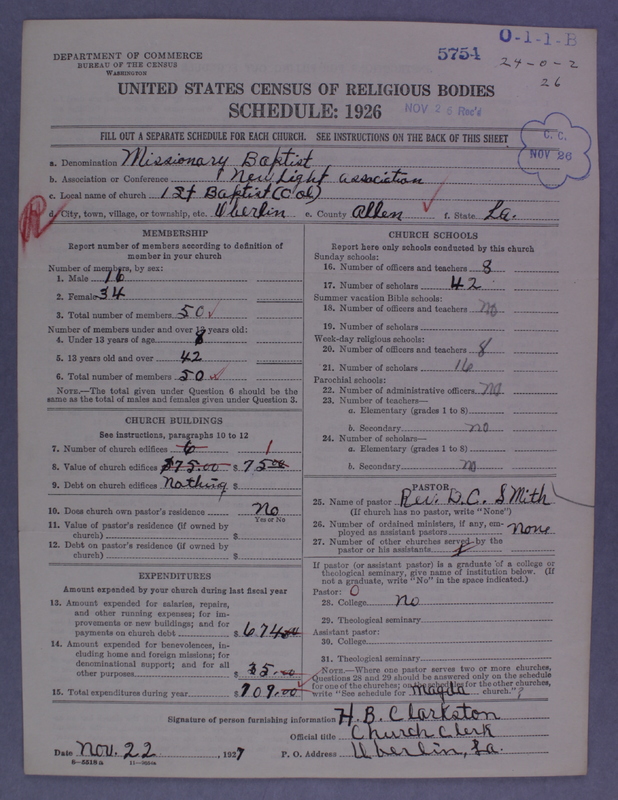 5754
O-1-1-B
24-0-2
26
DEPARTMENT OF COMMERCE
BUREAU OF THE CENSUS
WASHINGTON
UNITED STATES CENSUS OF RELIGIOUS BODIES
SCHEDULE: 1926
NOV 26 Rec'd
C. C.
NOV 26
FILL OUT A SEPARATE SCHEDULE FOR EACH CHURCH. SEE INSTRUCTIONS ON THE BACK OF THIS SHEET
a. Denomination Missionary Baptist
b. Association or Conference New Light association
c. Local name of church 1st Baptist (Col)
d. City, town, village, or township, etc. Oberlin e. County Allen f. State La.
MEMBERSHIP
Report number of members according to definition of
member in your church
Number of members, by sex:
1. Male 16
2. Female 34
3. Total number of members 50
Number of members under and over 13 years old:
4. Under 13 years of age 8
5. 13 years old and over 42
6. Total number of members 50
NOTE.—The total given under Question 6 should be
same as the total of males and females given under Question 3.
CHURCH BUILDINGS
See instructions, paragraphs 10 to 12
7. Number of church edifices 6 1
8. Value of church edifices $75.00 $ 7500
9. Debt on church edifices Nothing $
10. Does church own pastor's residence No
Yes or No
11. Value of pastor's residence (if owned by
church) $
12. Debt on pastor's residence (if owned by
church) $
EXPENDITURES
Amount expended by your church during last fiscal year
13. Amount expended for salaries, repairs,
and other running expenses; for im-
provements or new buildings; and for
payments on church debt $ 674
14. Amount expended for benevolences, in-
cluding home and foreign missions; for
denominational support; and for all
other purposes $ 35.00
15. Total expenditures during year $ 709.00
CHURCH SCHOOLS
Report here only schools conducted by this church
Sunday schools:
16. Number of officers and teachers 8
17. Number of scholars 42
Summer vacation Bible schools:
18. Number of officers and teachers no
19. Number of scholars
Week-day religious schools:
20. Number of officers and teachers 8
21. Number of scholars 16
Parochial schools:
22. Number of administrative officers no
23. Number of teachers—
a. Elementary (grades 1 to 8)
b. Secondary no
24. Number of scholars—
a. Elementary (grades 1 to 8)
b. Secondary no
PASTOR
25. Name of pastor Rev. D.C. Smith
(If church has no pastor, write "None")
26. Number of ordained ministers, if any, em-
ployed as assistant pastors None
27. Number of other churches served by the
pastor or his assistants
If pastor (or assistant pastor) is a graduate of a college or
theological seminary, give name of institution below. (If
not a graduate, write "No" in the space indicated.)
Pastor: 0
28. College No
29. Theological seminary
Assistant pastor:
30. College
31. Theological seminary
NOTE.—Where one pastor serves two or more churches,
Questions 28 and 29 should be answered only on the schedule
for one of the churches; on the schedule for the other churches,
write "See schedule for church."
Signature of person furnishing information H. B. Clarkston
Official title Church Clerk
Date Nov. 22, 1927 P. O. Address Oberlin, La.
8—5518a